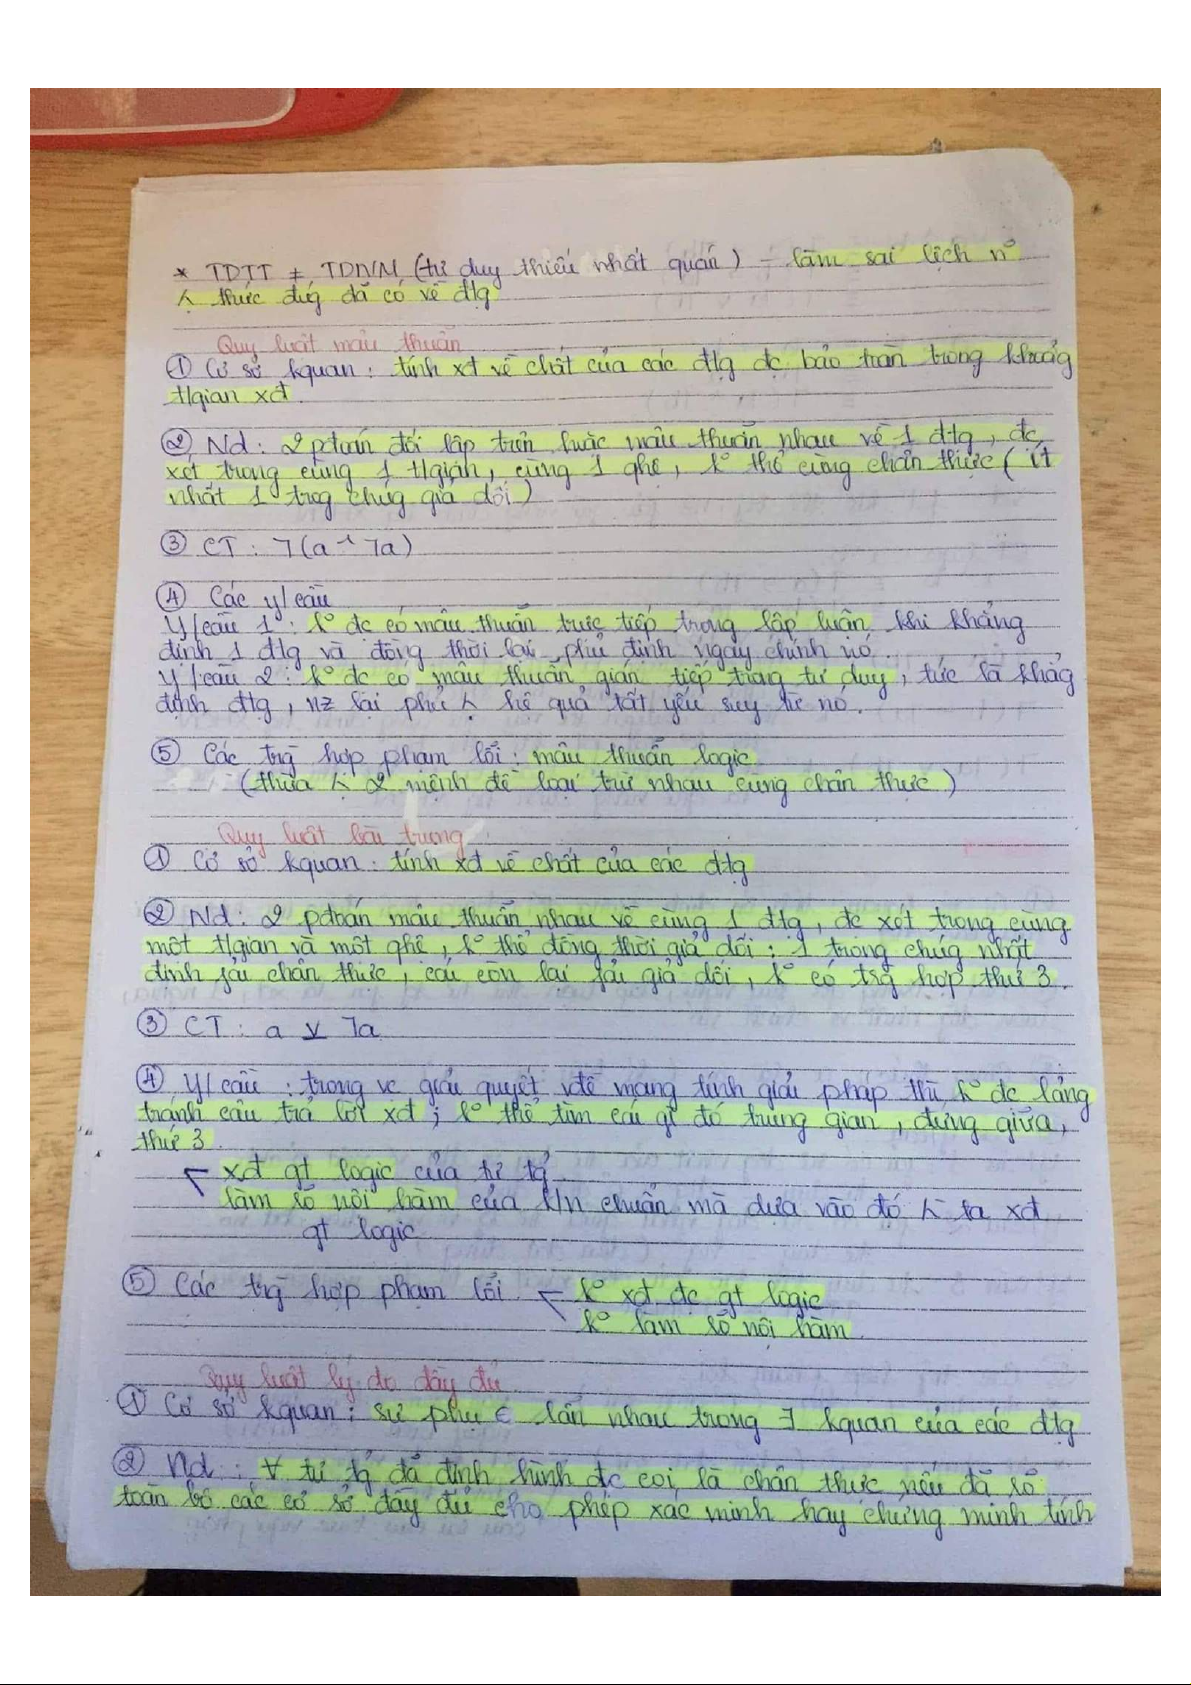 * TDTT ≠ TDN/M (tư duy thiếu nhất quán) - làm sai lệch n°
λ thức đúg đã có về đtg
Quy luật mâu thuẫn
① Cơ sở kquan : tính xđ về chất của các đtg đc bảo toàn trong khoảg
tlgian xđ.
② Nd : 2 pđoán đối lập trên hoặc mâu thuẫn nhau về 1 đtg, đc
xét trong cùng 1 tlgian, cùng 1 qhệ, k° thể cùng chân thực ( ít
nhất 1 trog chúg giả dối )
③ CT : ⌉(a ∧ ⌉a)
④ Các y/cầu
Y/cầu 1 : k° đc có mâu thuẫn trực tiếp trong lập luận, khi khẳng
định 1 đtg và đồng thời lại phủ định ngay chính nó.
Y/cầu 2 : k° đc có mâu thuẫn gián tiếp trong tư duy, tức là khẳg
định đtg, nz lại phủ λ hệ quả tất yếu suy từ nó.
⑤ Các trg̀ hợp phạm lỗi : mâu thuẫn logic
(thừa λ 2 mệnh đề loại trừ nhau cùng chân thực)
Quy luật bài trung
① Cơ sở kquan : tính xđ về chất của các đtg
② Nd : 2 pđoán mâu thuẫn nhau về cùng 1 đtg, đc xét trong cùng
một tlgian và một qhệ, k° thể đồng thời giả dối : 1 trong chúg nhất
định fải chân thực, cái còn lại fải giả dối, k° có trg̀ hợp thứ 3.
③ CT : a ⊻ ⌉a
④ Y/cầu : trong vc giải quyết vđề mang tính giải pháp thì k° đc lảng
tránh câu trả lời xđ ; k° thể tìm cái gì đó trung gian, đứng giữa,
thứ 3
xđ gt logic của tư tg̉
làm rõ nội hàm của k/n chuẩn mà dựa vào đó λ ta xđ
gt logic
⑤ Các trg̀ hợp phạm lỗi k° xđ đc gt logic
k° làm rõ nội hàm
Quy luật lý do đầy đủ
① Cơ sở kquan : sự phụ ∈ lẫn nhau trong ∃ kquan của các đtg
② Nd : ∀ tư tg̉ đã định hình đc coi là chân thực nếu đã rõ
toàn bộ các cơ sở đầy đủ cho phép xác minh hay chứng minh tính